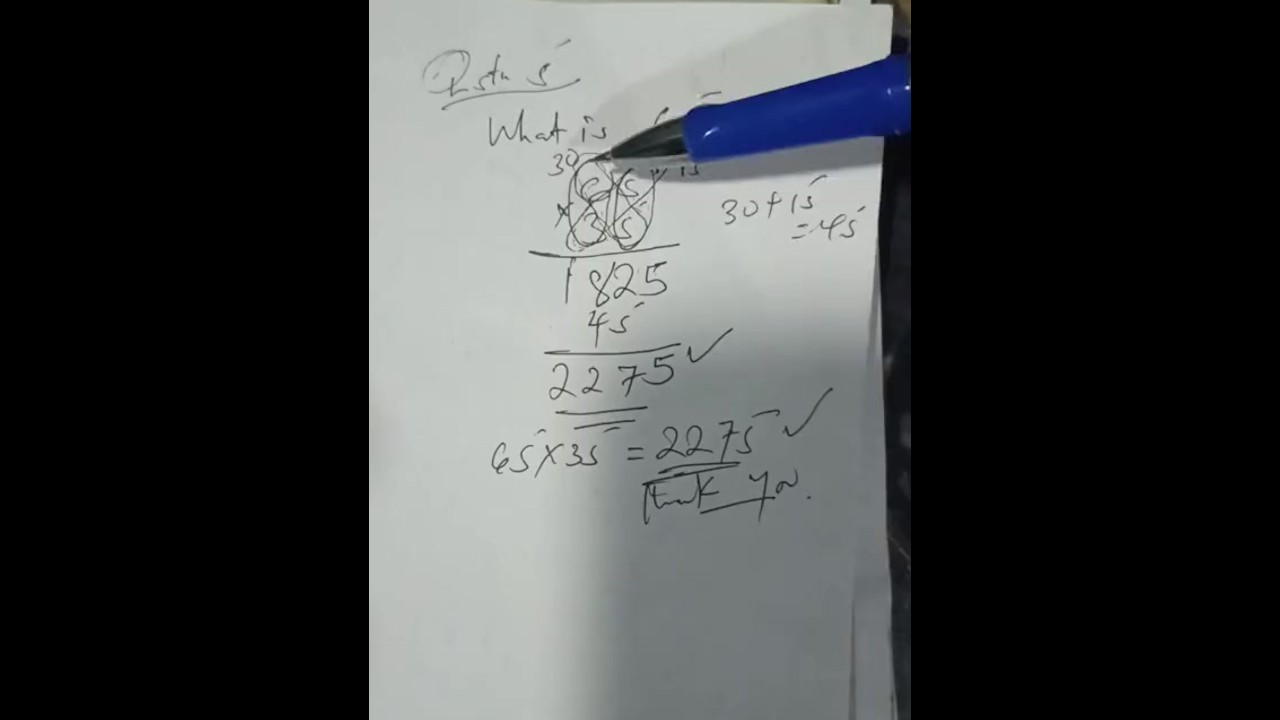 Qstn 5
What is
30 6 5 15
30 + 15
x 3 5
= 45
1825
45
2275 ✓
65 x 35 = 2275 ✓
Thank you.